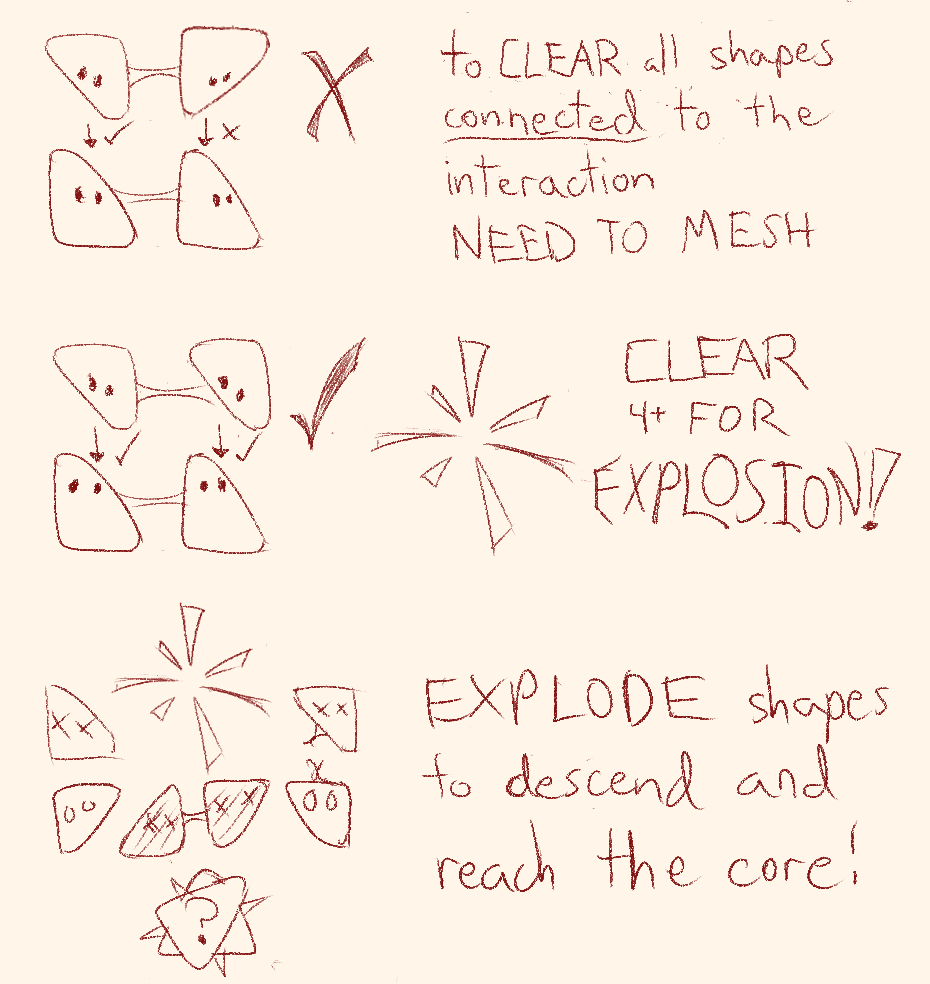 to CLEAR all shapes
connected to the
interaction
NEED TO MESH
CLEAR
4+ FOR
EXPLOSION!
EXPLODE shapes
to descend and
reach the core!
?